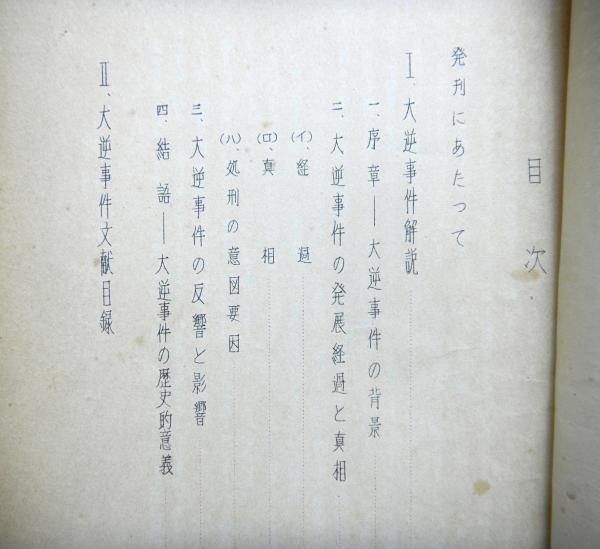 目次
発刊にあたつて
Ⅰ、大逆事件解説
一、序章――大逆事件の背景
二、大逆事件の発展経過と真相
(イ)、経過
(ロ)、真相
(ハ)、処刑の意図要因
三、大逆事件の反響と影響
四、結語――大逆事件の歴史的意義
Ⅱ、大逆事件文献目録